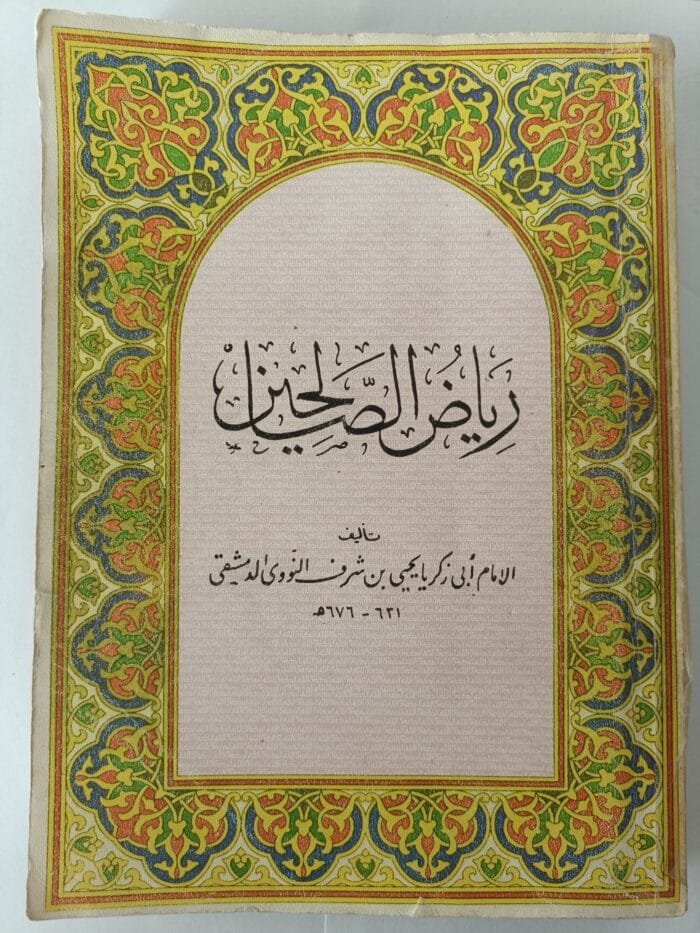 رِيَاضُ الصَّالِحِينَ
تأليف
الامام أبى زكريا يحيى بن شرف النووى الدمشقى
٦٣١ - ٦٧٦ھ